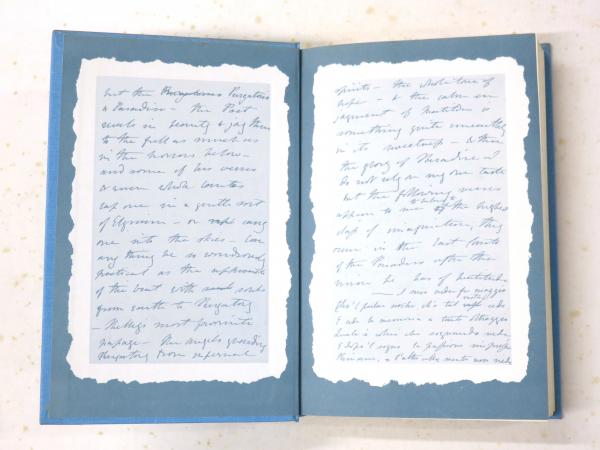 but the Purgatorio
& Paradiso — the Poet
revels in beauty & joy there
to the full as much as
in the horrors below —
and some of his verses
& even whole cantos
lap one in a gentle sort
of Elysium — or carry
one into the skies — Can
any thing be so wondrously
poetical as the approach
of the boat with souls
from earth to Purgatory
— Shelley's most favourite
passage — the angels guarding
Purgatory from infernal
spirits — the whole tone of
hope — & the calm en
joyment of Matilda is
something quite unearthly
in its sweetness — & then
the glory of Paradise. I
do not rely on my own taste
but the following verses
appear to me to belong to the highest
class of imagination, they
occur in the last Canto
of the Paradiso after the
vision he has of beatitude